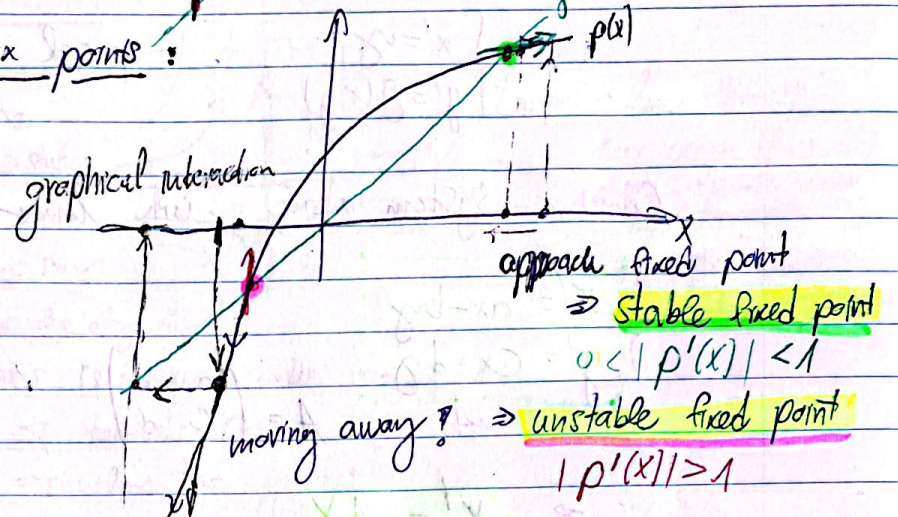 x points :
p(x)
graphical interaction
x
approach fixed point
⇒ stable fixed point
0 < | p'(x) | < 1
moving away ! ⇒ unstable fixed point
| p'(x) | > 1